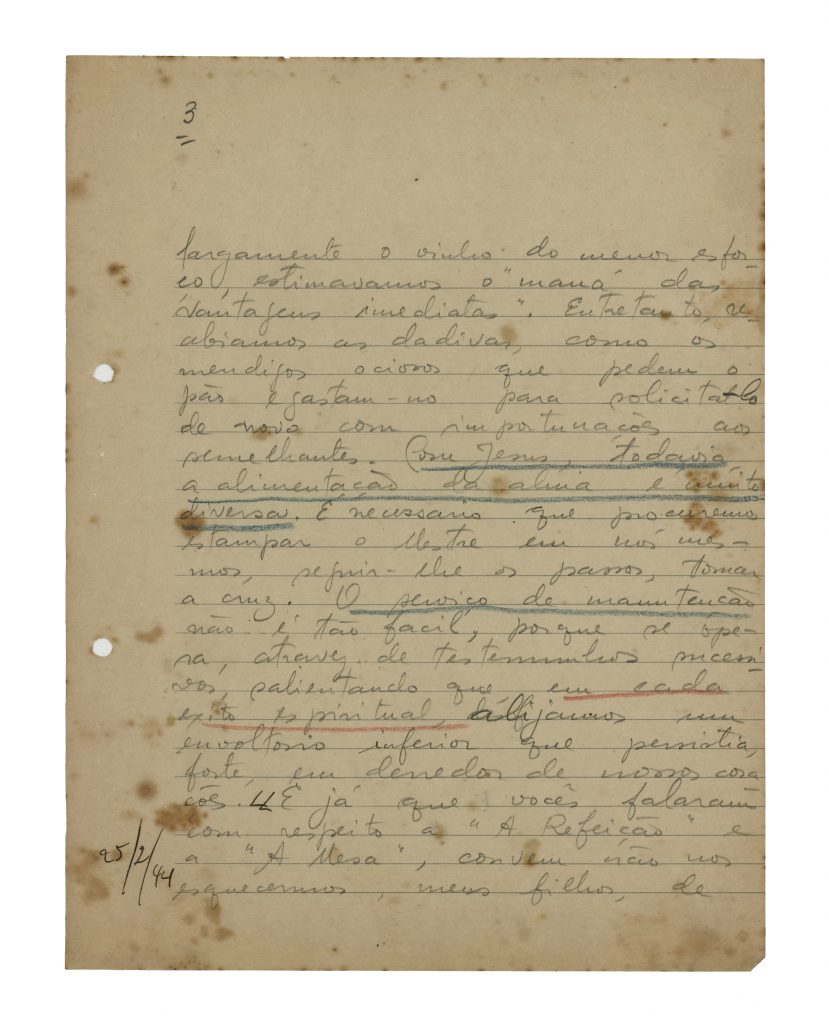 3
largamente o vinho do menor esfor-
ço, estimavamos o "maná das
vantagens imediatas". Entretanto, re-
abiamos as dadivas, como os
mendigos ociosos que pedem o
pão e gastam-no para solicita-lo
de novo com importunações aos
semelhantes. Com Jesus, todavia
a alimentação da alma é muito
diversa. É necessario que procuremos
estampar o Mestre em nós mes-
mos, seguir-lhe os passos, tomar
a cruz. O serviço de manutenção
não é tão facil, porque se ope-
ra, atravez de testemunhos sucessi-
vos, salientando que em cada
exito espiritual, alijamos um
envoltorio inferior que persistia,
forte, em derredor de nossos cora
ções. E já que vocês falaram
com respeito a "A Refeição" e
a "A Mesa", convem não nos
25/2/44
esquecermos, meus filhos, de